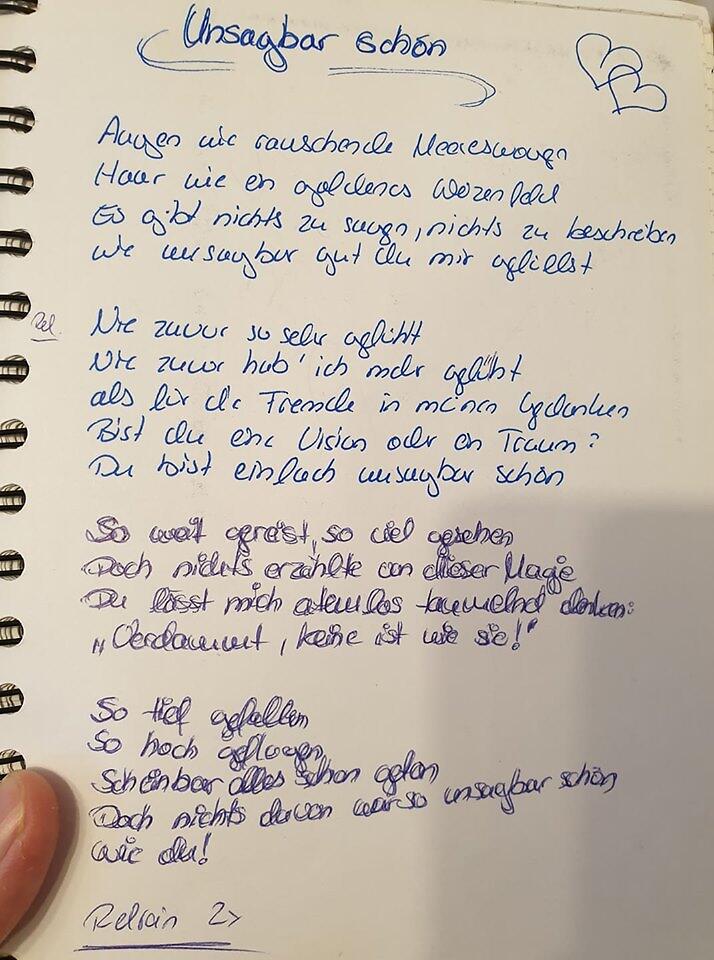 Unsagbar schön
Augen wie rauschende Meereswogen
Haar wie ein goldenes Weizenfeld
Es gibt nichts zu sagen, nichts zu beschreiben
wie unsagbar gut du mir gefällst
Ref.
Nie zuvor so sehr gefühlt
Nie zuvor hab' ich mehr geglüht
als für die Fremde in meinen Gedanken
Bist du eine Vision oder ein Traum?
Du bist einfach unsagbar schön
So weit gereist, so viel gesehen
Doch nichts erzählte von dieser Magie
Du lässt mich atemlos taumelnd denken:
"Verdammt, keine ist wie sie!"
So tief gefallen
So hoch geflogen
Scheinbar alles schon getan
Doch nichts davon war so unsagbar schön
wie du!
Refrain 2x